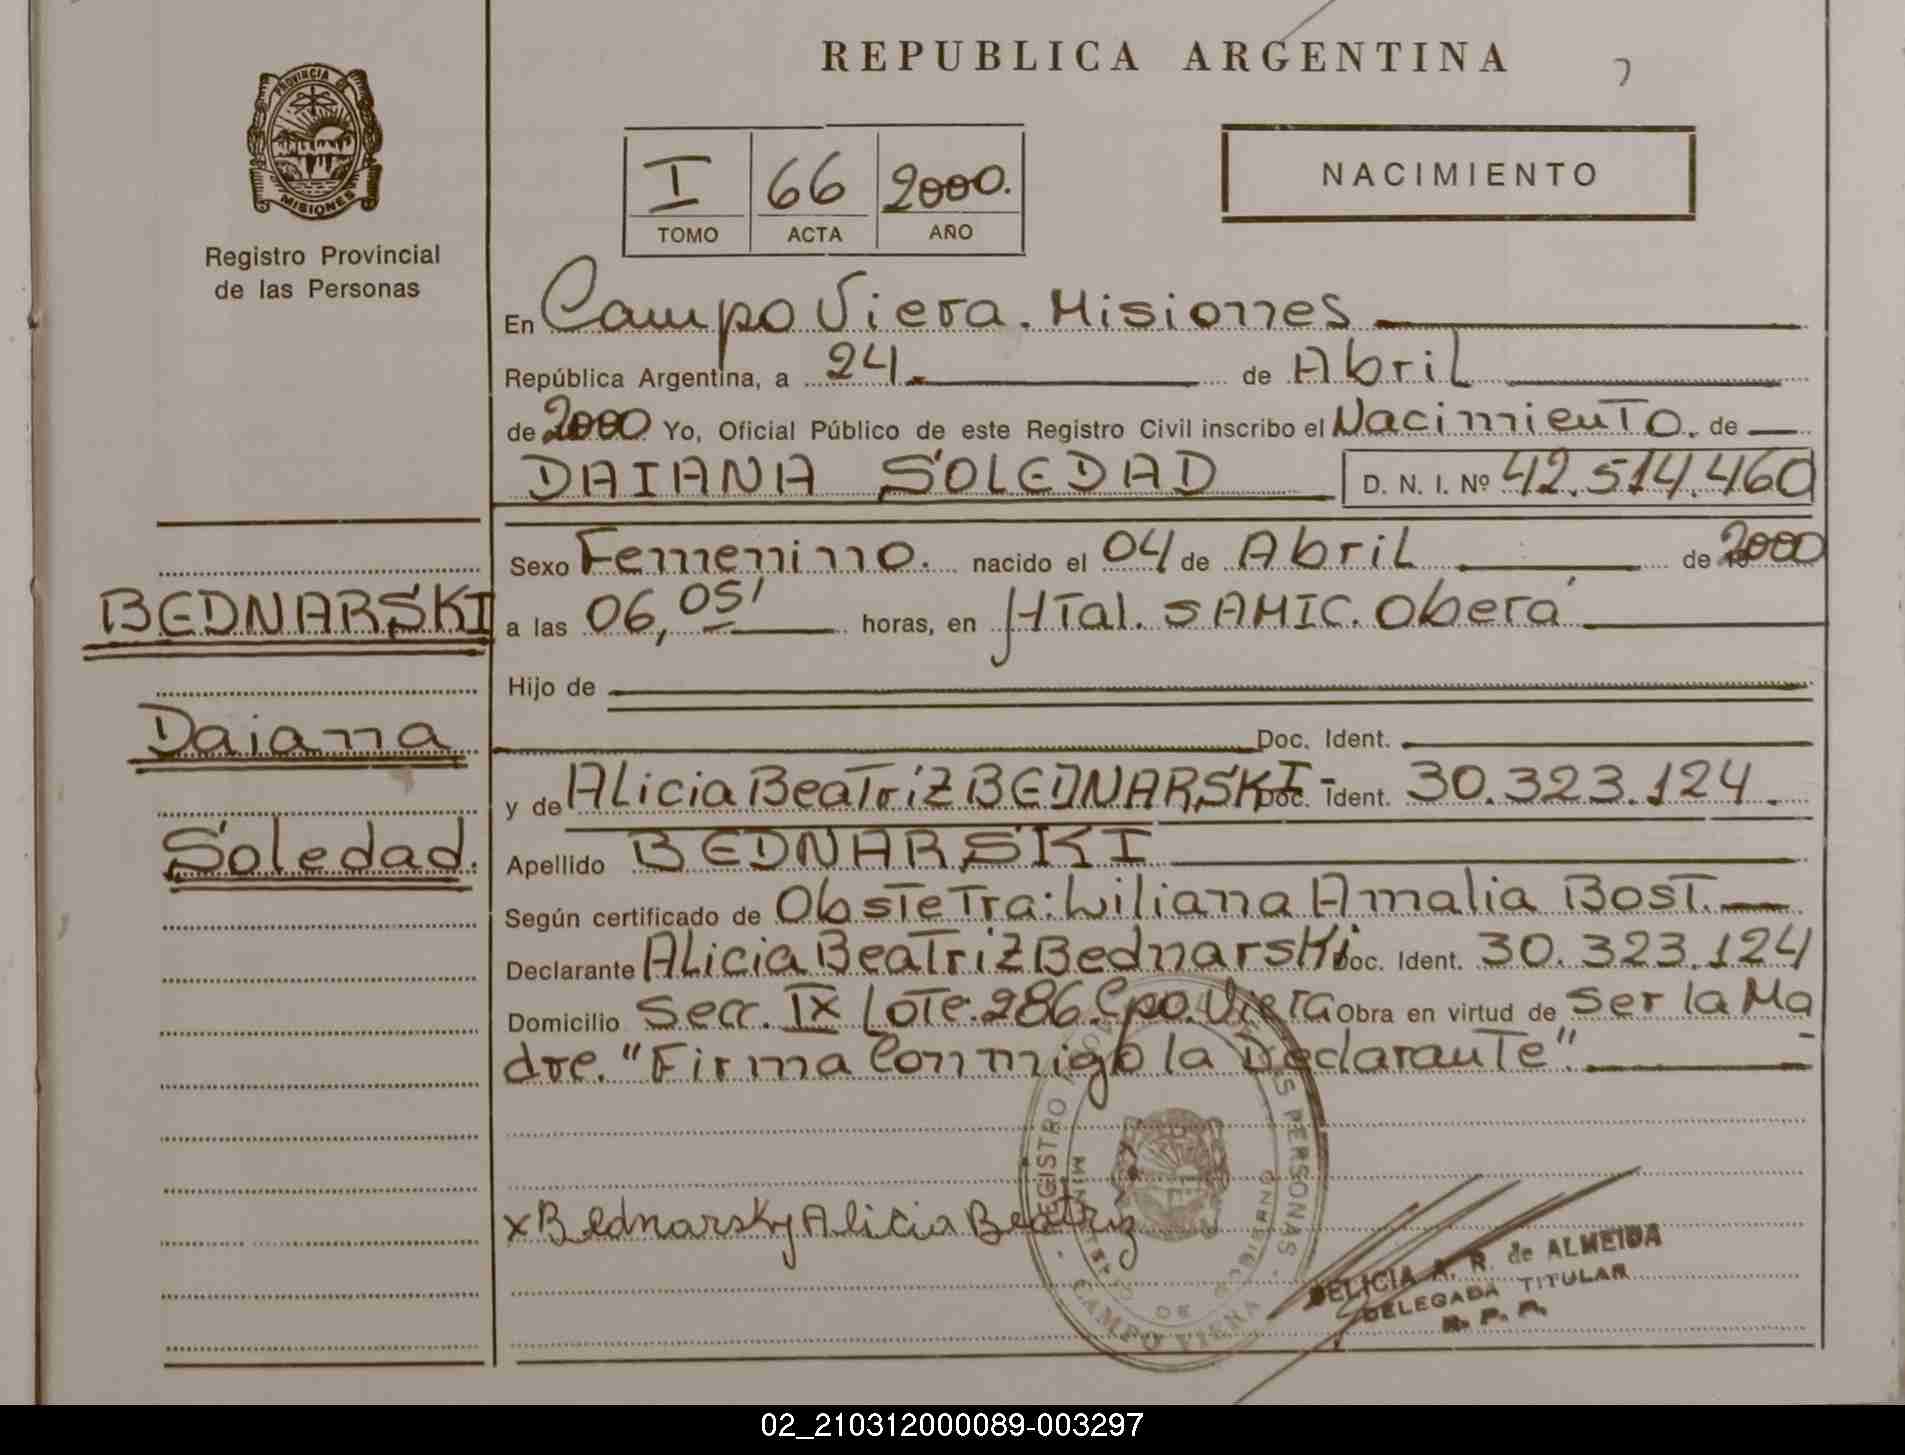 REPUBLICA ARGENTINA
PROVINCIA DE
MISIONES
Registro Provincial
de las Personas
I 66 2000.
TOMO ACTA AÑO
NACIMIENTO
En Campo Viera. Misiones
República Argentina, a 24. de Abril
de 2000 Yo, Oficial Público de este Registro Civil inscribo el Nacimiento. de
DAIANA SOLEDAD D. N. I. Nº 42.514.460
Sexo Femenino. nacido el 04 de Abril de 2000
BEDNARSKI
a las 06,05' horas, en HTal. SAMIC. Oberá
Hijo de
Daiana
Doc. Ident.
y de Alicia Beatriz BEDNARSKI- Doc. Ident. 30.323.124.
Soledad.
Apellido BEDNARSKI
Según certificado de Obstetra: Liliana Amalia Bost.
Declarante Alicia Beatriz Bednarski Doc. Ident. 30.323.124
Domicilio Secc. IX Lote. 286. Cpo. Viera Obra en virtud de Ser la Ma
dre. "Firma Conmigo la Declarante".
x Bednarsky Alicia Beatriz
REGISTRO PERSONAS
CAMPO VIERA
DELICIA A. R. de ALMEIDA
DELEGADA TITULAR
R. P. P.
02_210312000089-003297